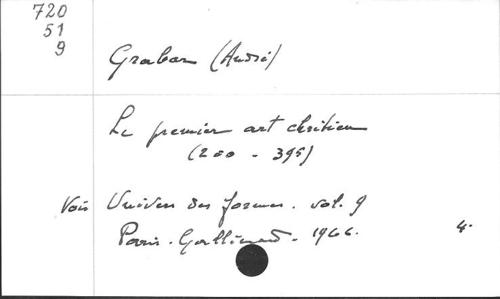 720
51
9
Grabar (André)
Le premier art chrétien
(200 - 395)
Voir Univers des formes. vol. 9
Paris. Gallimard. 1966. 4.